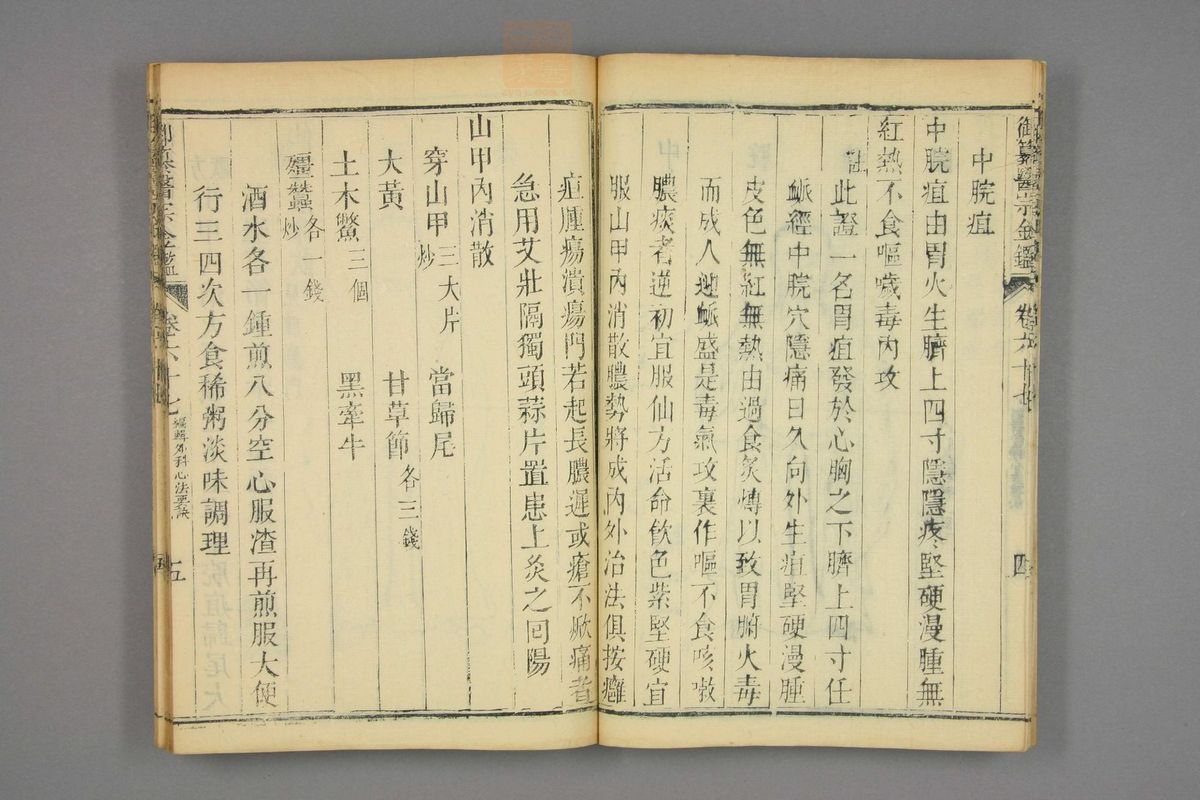 御纂醫宗金鑑 卷六十七 四
中脘疽
中脘疽由胃火生臍上四寸隱隱疼堅硬漫腫無
紅熱不食嘔噦毒內攻
註此證一名胃疽發於心胸之下臍上四寸任
脈經中脘穴隱痛日久向外生疽堅硬漫腫
皮色無紅無熱由過食炙煿以致胃腑火毒
而成人迎脈盛是毒氣攻裏作嘔不食咳嗽
膿痰者逆初宜服仙方活命飲色紫堅硬宜
服山甲內消散膿勢將成內外治法俱按癰
疽腫瘍潰瘍門若起長膿遲或瘡不焮痛者
急用艾壯隔獨頭蒜片置患上灸之囘陽
山甲內消散
穿山甲三大片炒 當歸尾
大黃 甘草節各三錢
土木鱉三個 黑牽牛
殭蠶炒各一錢
酒水各一鍾煎八分空心服渣再煎服大便
行三四次方食稀粥淡味調理
卷六十七 編輯外科心法要訣 五